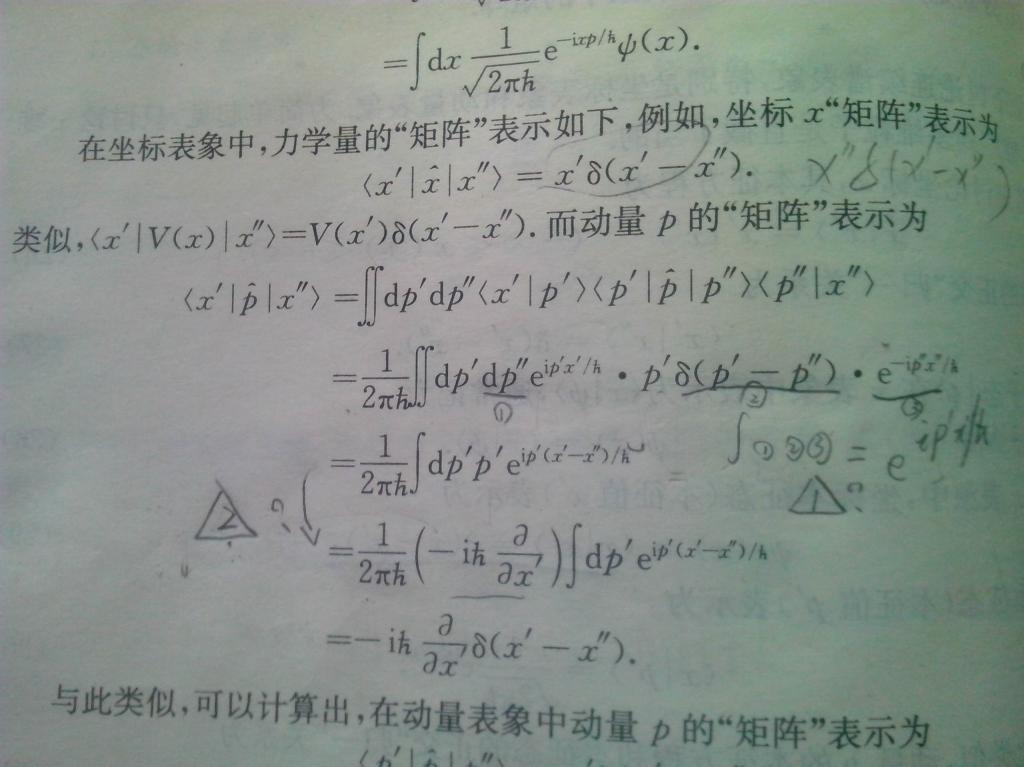 =∫dx 1/√2πħ e^{-ixp/ħ}ψ(x).
在坐标表象中,力学量的“矩阵”表示如下,例如,坐标 x“矩阵”表示为
⟨x′|x̂|x″⟩ = x′δ(x′−x″). x″δ(x′−x″)
类似,⟨x′|V(x)|x″⟩=V(x′)δ(x′−x″). 而动量 p 的“矩阵”表示为
⟨x′|p̂|x″⟩ =∬dp′dp″⟨x′|p′⟩⟨p′|p̂|p″⟩⟨p″|x″⟩
=1/2πħ ∬dp′dp″e^{ip′x′/ħ}・p′δ(p′−p″)・e^{-ip″x″/ħ}
① ② ③
=1/2πħ ∫dp′p′e^{ip′(x′−x″)/ħ} ∫①②③ = e
2 ? 1 ?
=1/2πħ (−iħ ∂/∂x′)∫dp′e^{ip′(x′−x″)/ħ}
=−iħ ∂/∂x′ δ(x′−x″).
与此类似,可以计算出,在动量表象中动量 p 的“矩阵”表示为